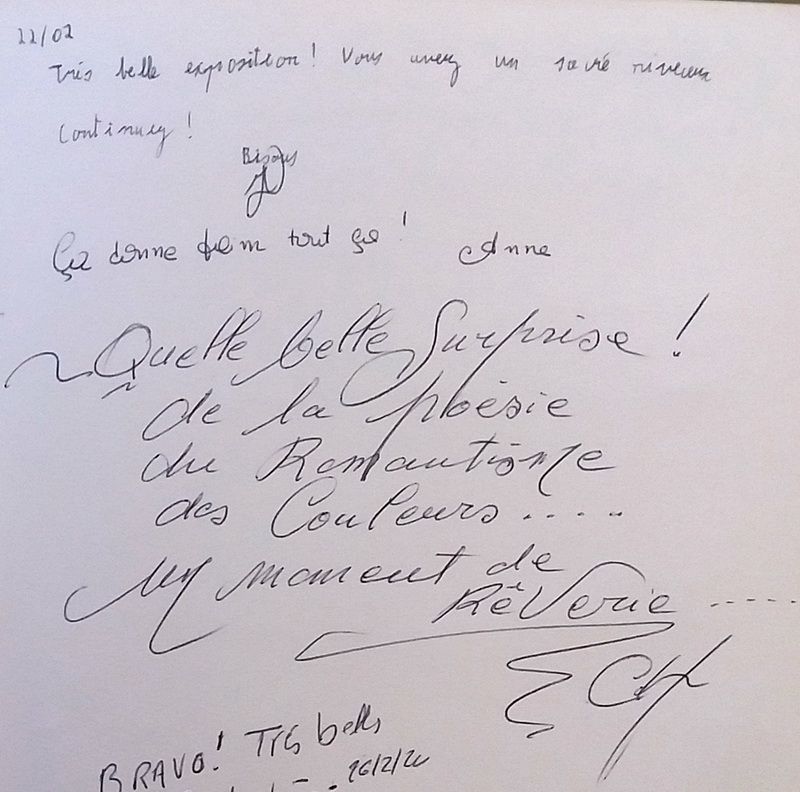 22/02
Très belle exposition ! Vous avez un sacré niveau
Continuez !
Bisous
Ça donne faim tout ça ! Anne
Quelle belle Surprise !
de la poésie
du Romantisme
des Couleurs .....
Un moment de
RêVerie .....
BRAVO! Très belle
26/2/20